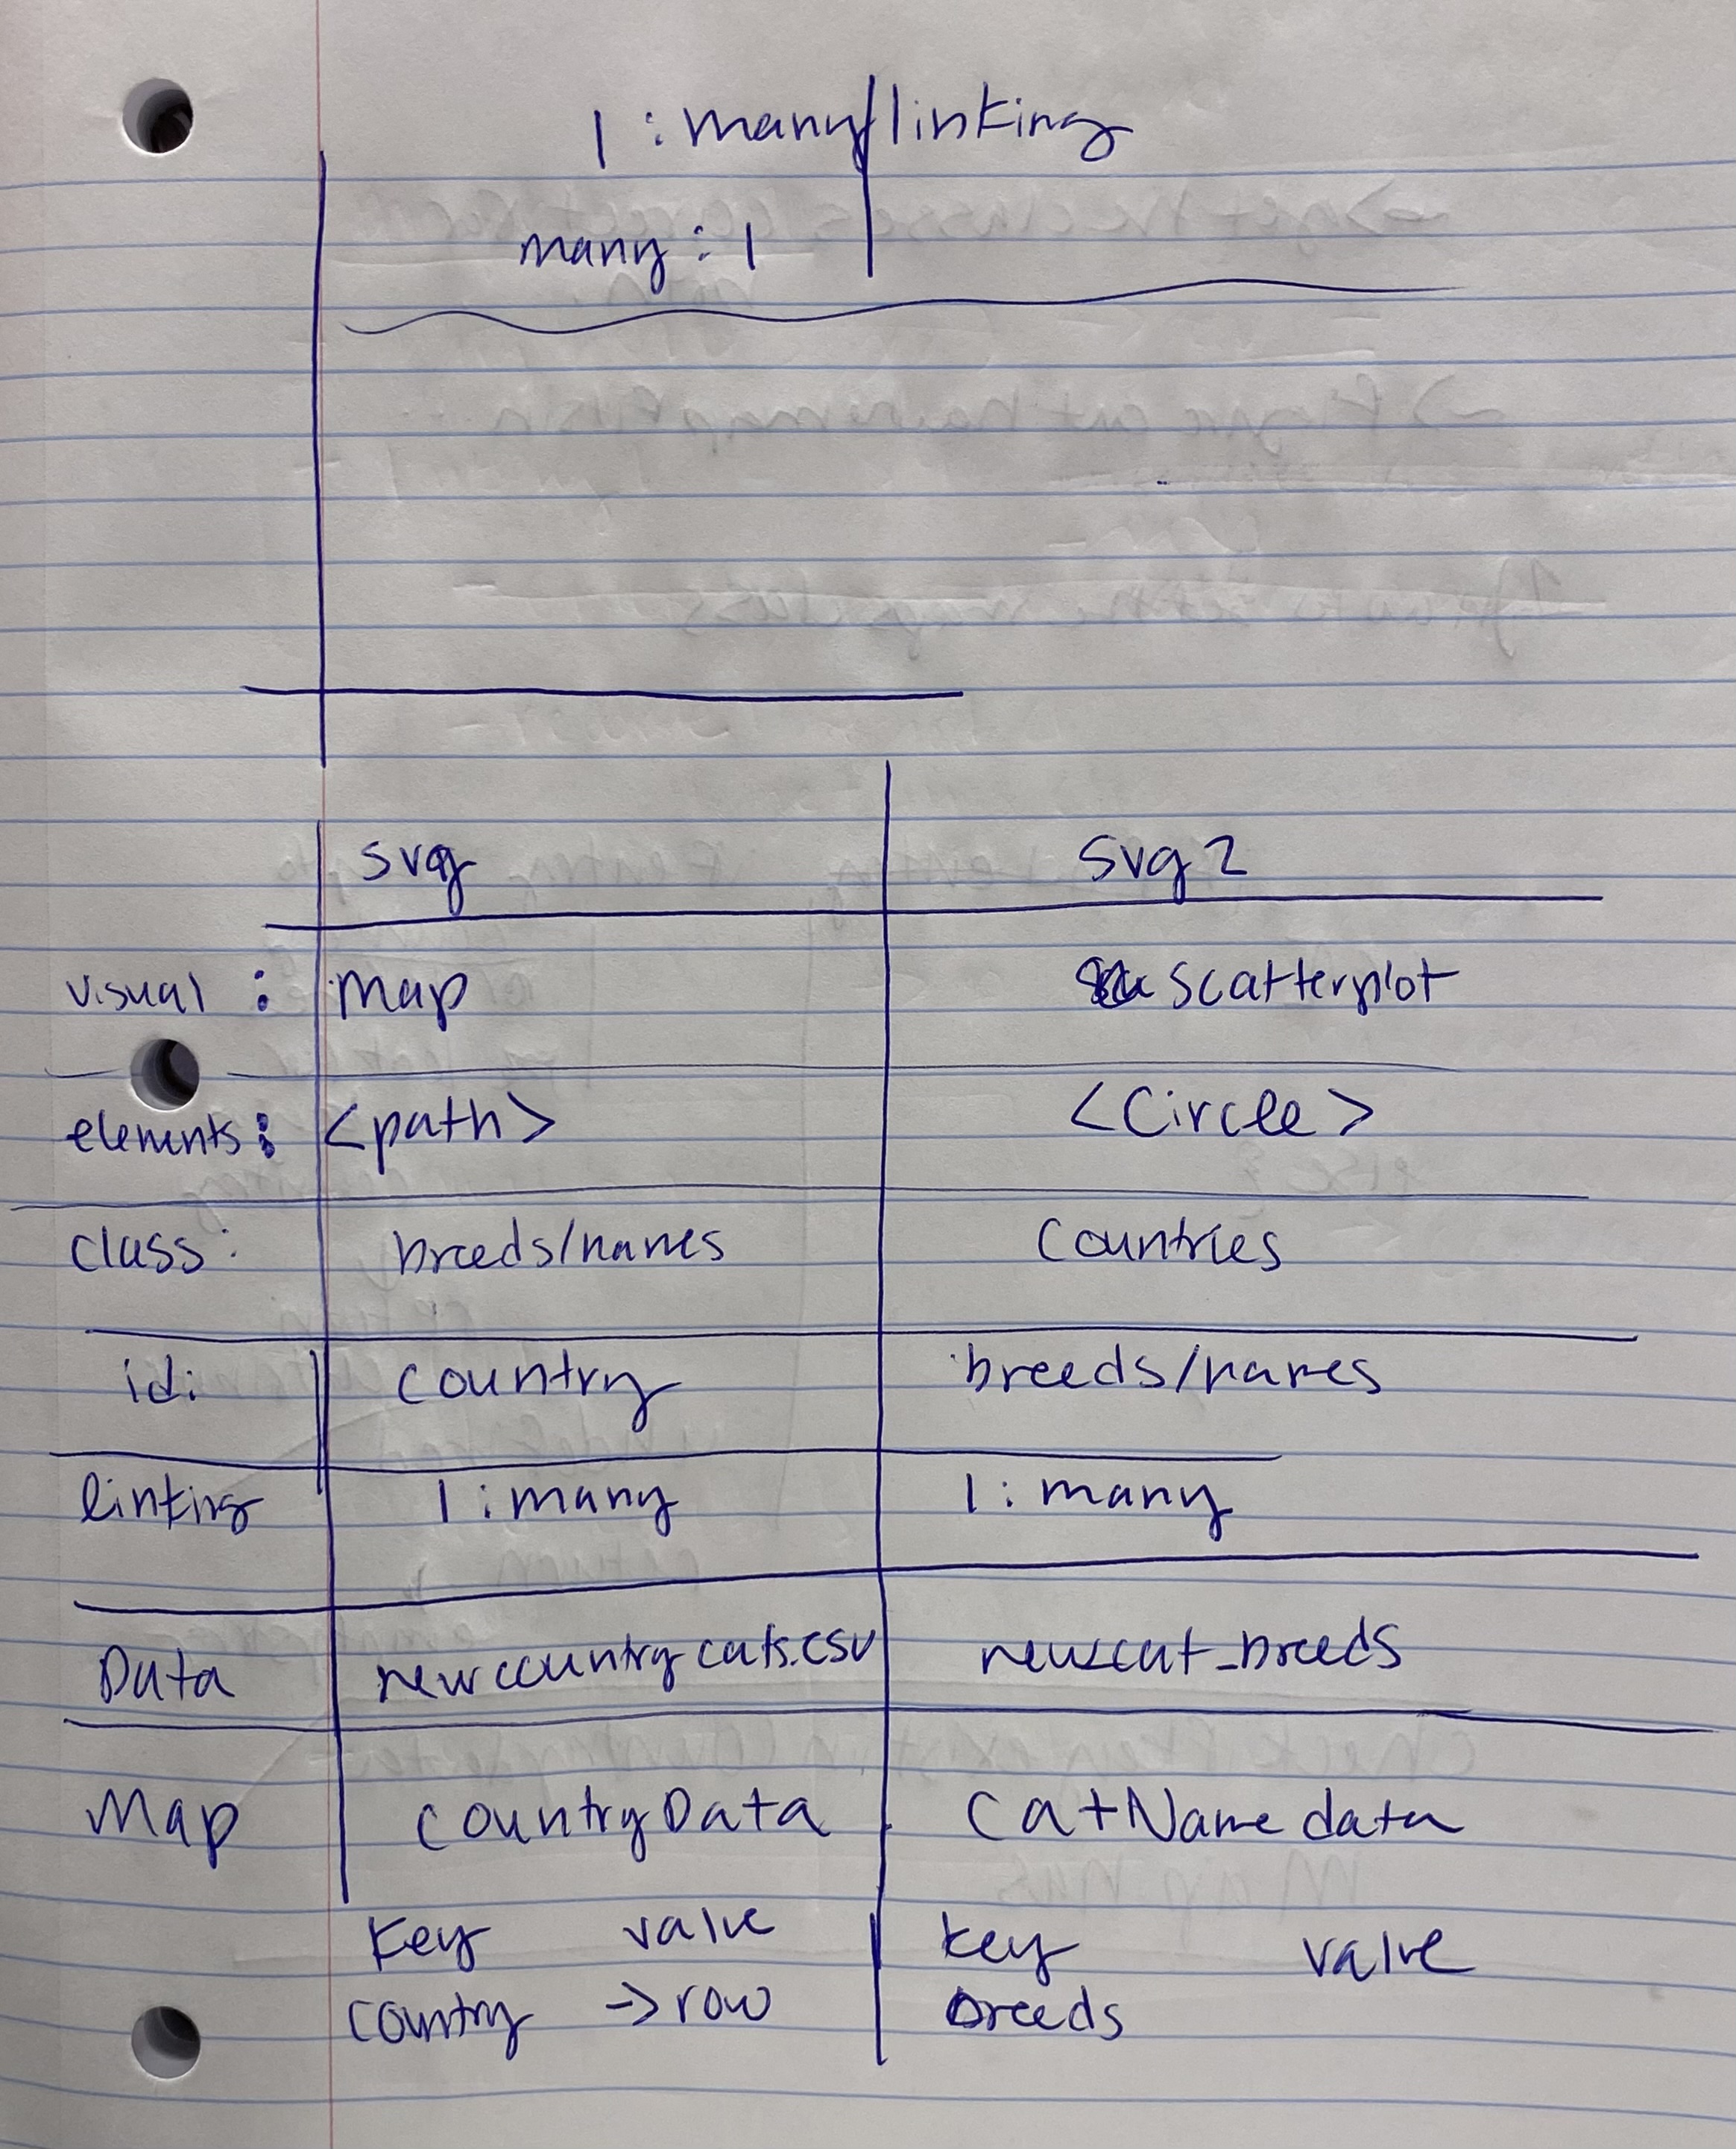 1 : many linking
many : 1
svg svg 2
visual : map scatterplot
elements : <path> <Circle>
class : breeds/names Countries
id: country breeds/names
linking 1 : many 1 : many
Data newcountrycats.csv new_cat_breeds
Map countryData CatNamedata
Key value key value
country -> row breeds